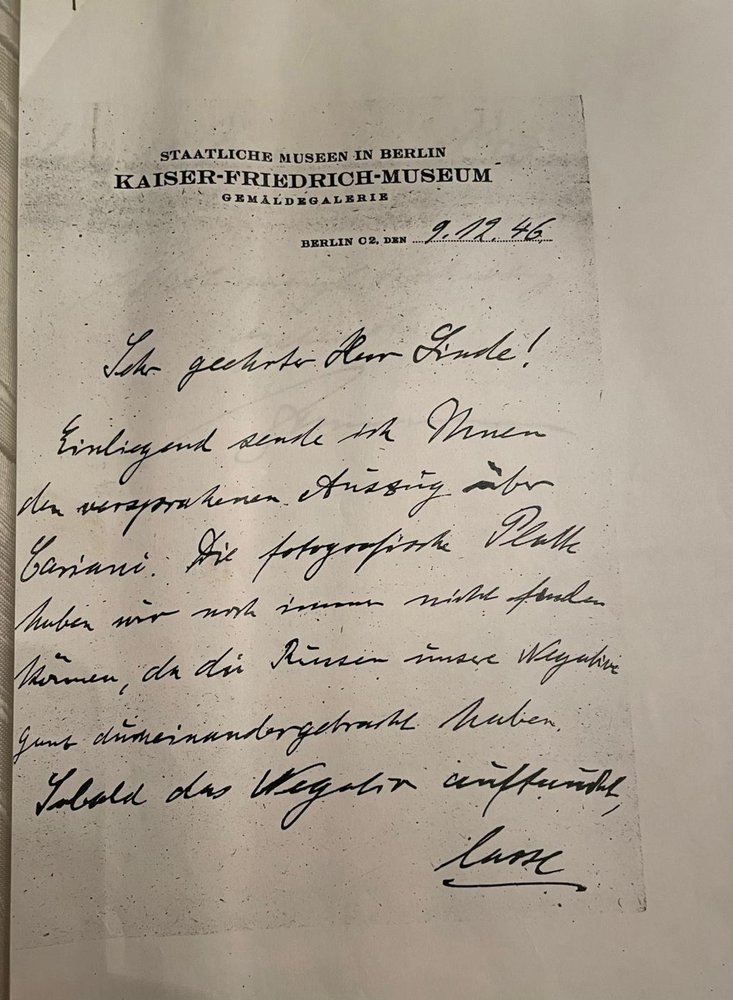 STAATLICHE MUSEEN IN BERLIN
KAISER-FRIEDRICH-MUSEUM
GEMÄLDEGALERIE
BERLIN C2, DEN 9.12.46
Sehr geehrter Herr Linde!
Einliegend sende ich Ihnen
den versprochenen Auszug über
Cariani. Die fotografische Platte
haben wir noch immer nicht finden
können, da die Russen unsere Negative
ganz durcheinandergebracht haben.
Sobald das Negativ auftaucht,
lasse